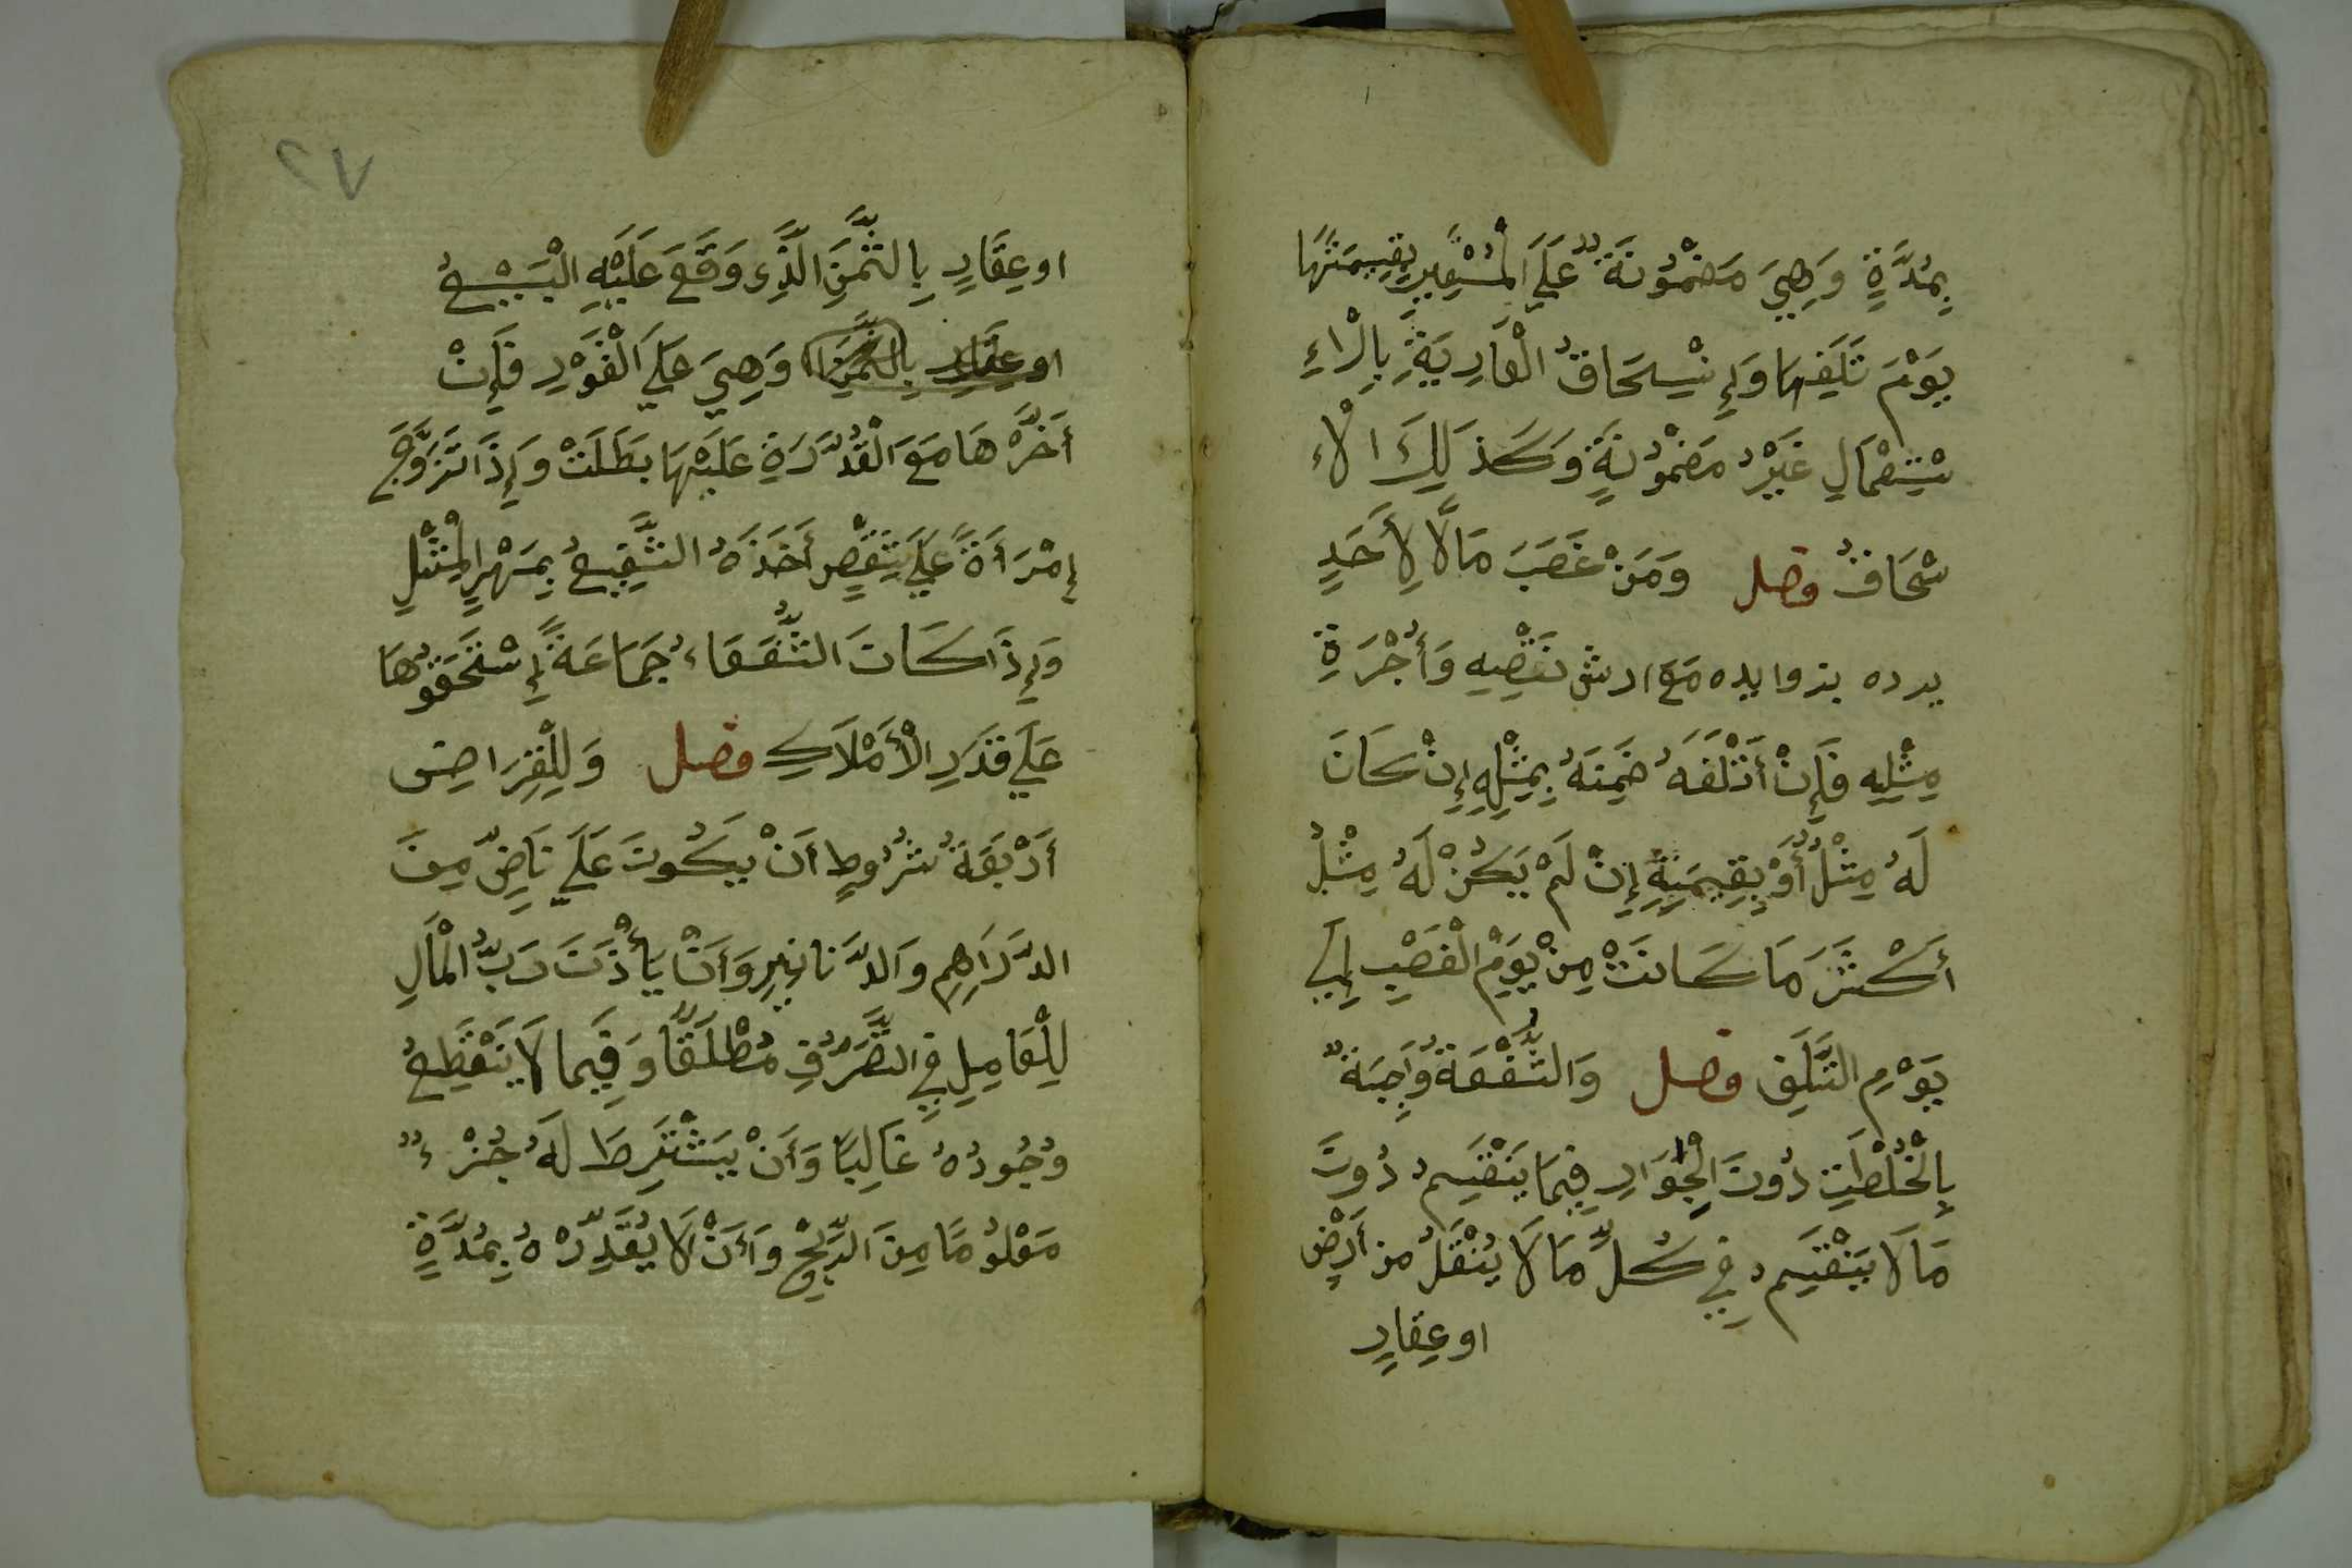 بِمُدَّةٍ وَهِيَ مَضْمُوْنَةٌ عَلَي الْمُسْتَعِيْرِ بِقِيمَتِهَا
يَوْمَ تَلَفِهَا وَإِنْسِحَاقُ الْعَارِيَةِ بِالْاءِ
سْتِعْمَالِ غَيْرُ مَضْمُوْنَةٍ وَكَذَلِكَ الْاءِ
نْسِحَاقُ فصل وَمَنْ غَصَبَ مَالًا لِأَحَدٍ
يرده بزوايده مَعَ ارش نَقْصِهِ وَأُجْرَةِ
مِثْلِهِ فَإِنْ أَتْلَفَهُ ضَمِنَهُ بِمِثْلِهِ إِنْ كَانَ
لَهُ مِثْلٌ أَوْ بِقِيمَتِهِ إِنْ لَمْ يَكُنْ لَهُ مِثْلٌ
أَكْثَرَ مَا كَانَتْ مِنْ يَوْمِ الْغَصْبِ إِلَي
يَوْمِ التَّلَفِ فصل وَالشُّفْعَةُ وَاجِبَةٌ
بِالْخُلْطَتِ دُونَ الْجِوَارِ فِيمَا يَنْقَسِمُ دُونَ
مَا لَا يَنْقَسِمُ فِي كُلِّ مَا لَا يُنْقَلُ من أَرْضٍ
او عِقارٍ
٢٧
او عِقَارٍ بِالثَّمَنِ الَّذِي وَقَعَ عَلَيْهِ الْبَيْعُ
او عِقَارٍ بِالثَّمَنِ وَهِيَ عَلَي الْفَوْرِ فَإِنْ
أَخَّرَهَا مَعَ الْقُدْرَةِ عَلَيْهَا بَطَلَتْ وَإِذَا تَزَوَّجَ
إِمْرَأَةً عَلَي شِقْصٍ أَخَذَهُ الشَّفِيعُ بِمَهْرِ الْمِثْلِ
وَإِذَا كَانَ الشُّفَعَاءُ جَمَاعَةً إِسْتَحَقُّوْهَا
عَلَي قَدَرِ الْأَمْلَاكِ فصل وَلِلْقِرَاضِ
أَرْبَعَةُ شُرُوطٍ أَنْ يَكُونَ عَلَي نَاضٍّ مِنَ
الدَّرَاهِمِ وَالدَّنَانِيرِ وَأَنْ يَأْذَنَ رَبُّ الْمَالِ
لِلْعَامِلِ فِي التَّصَرُّفِ مُطْلَقًا وَفِيمَا لَا يَنْقَطِعُ
وُجُودُهُ غَالِبًا وَأَنْ يَشْتَرِطَ لَهُ جُزْءٌ
مَعْلُومًا مِنَ الرِّبْحِ وَأَنْ لَا يُقَدِّرَهُ بِمُدَّةٍ